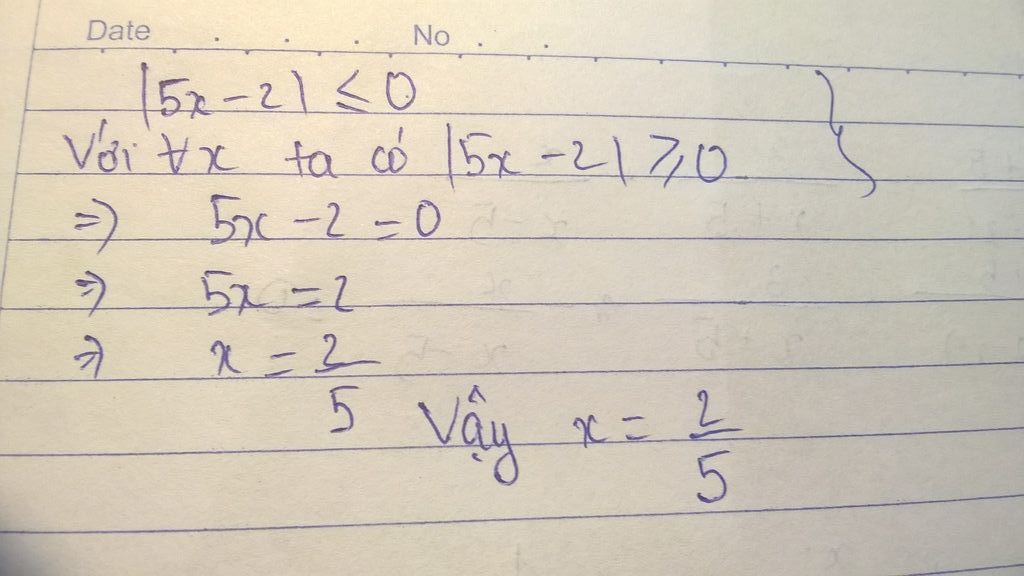 Date . . . No . .
|5x - 2| ≤ 0
Với ∀x ta có |5x - 2| ≥ 0 }
=> 5x - 2 = 0
=> 5x = 2
=> x = 2/5
Vậy x = 2/5